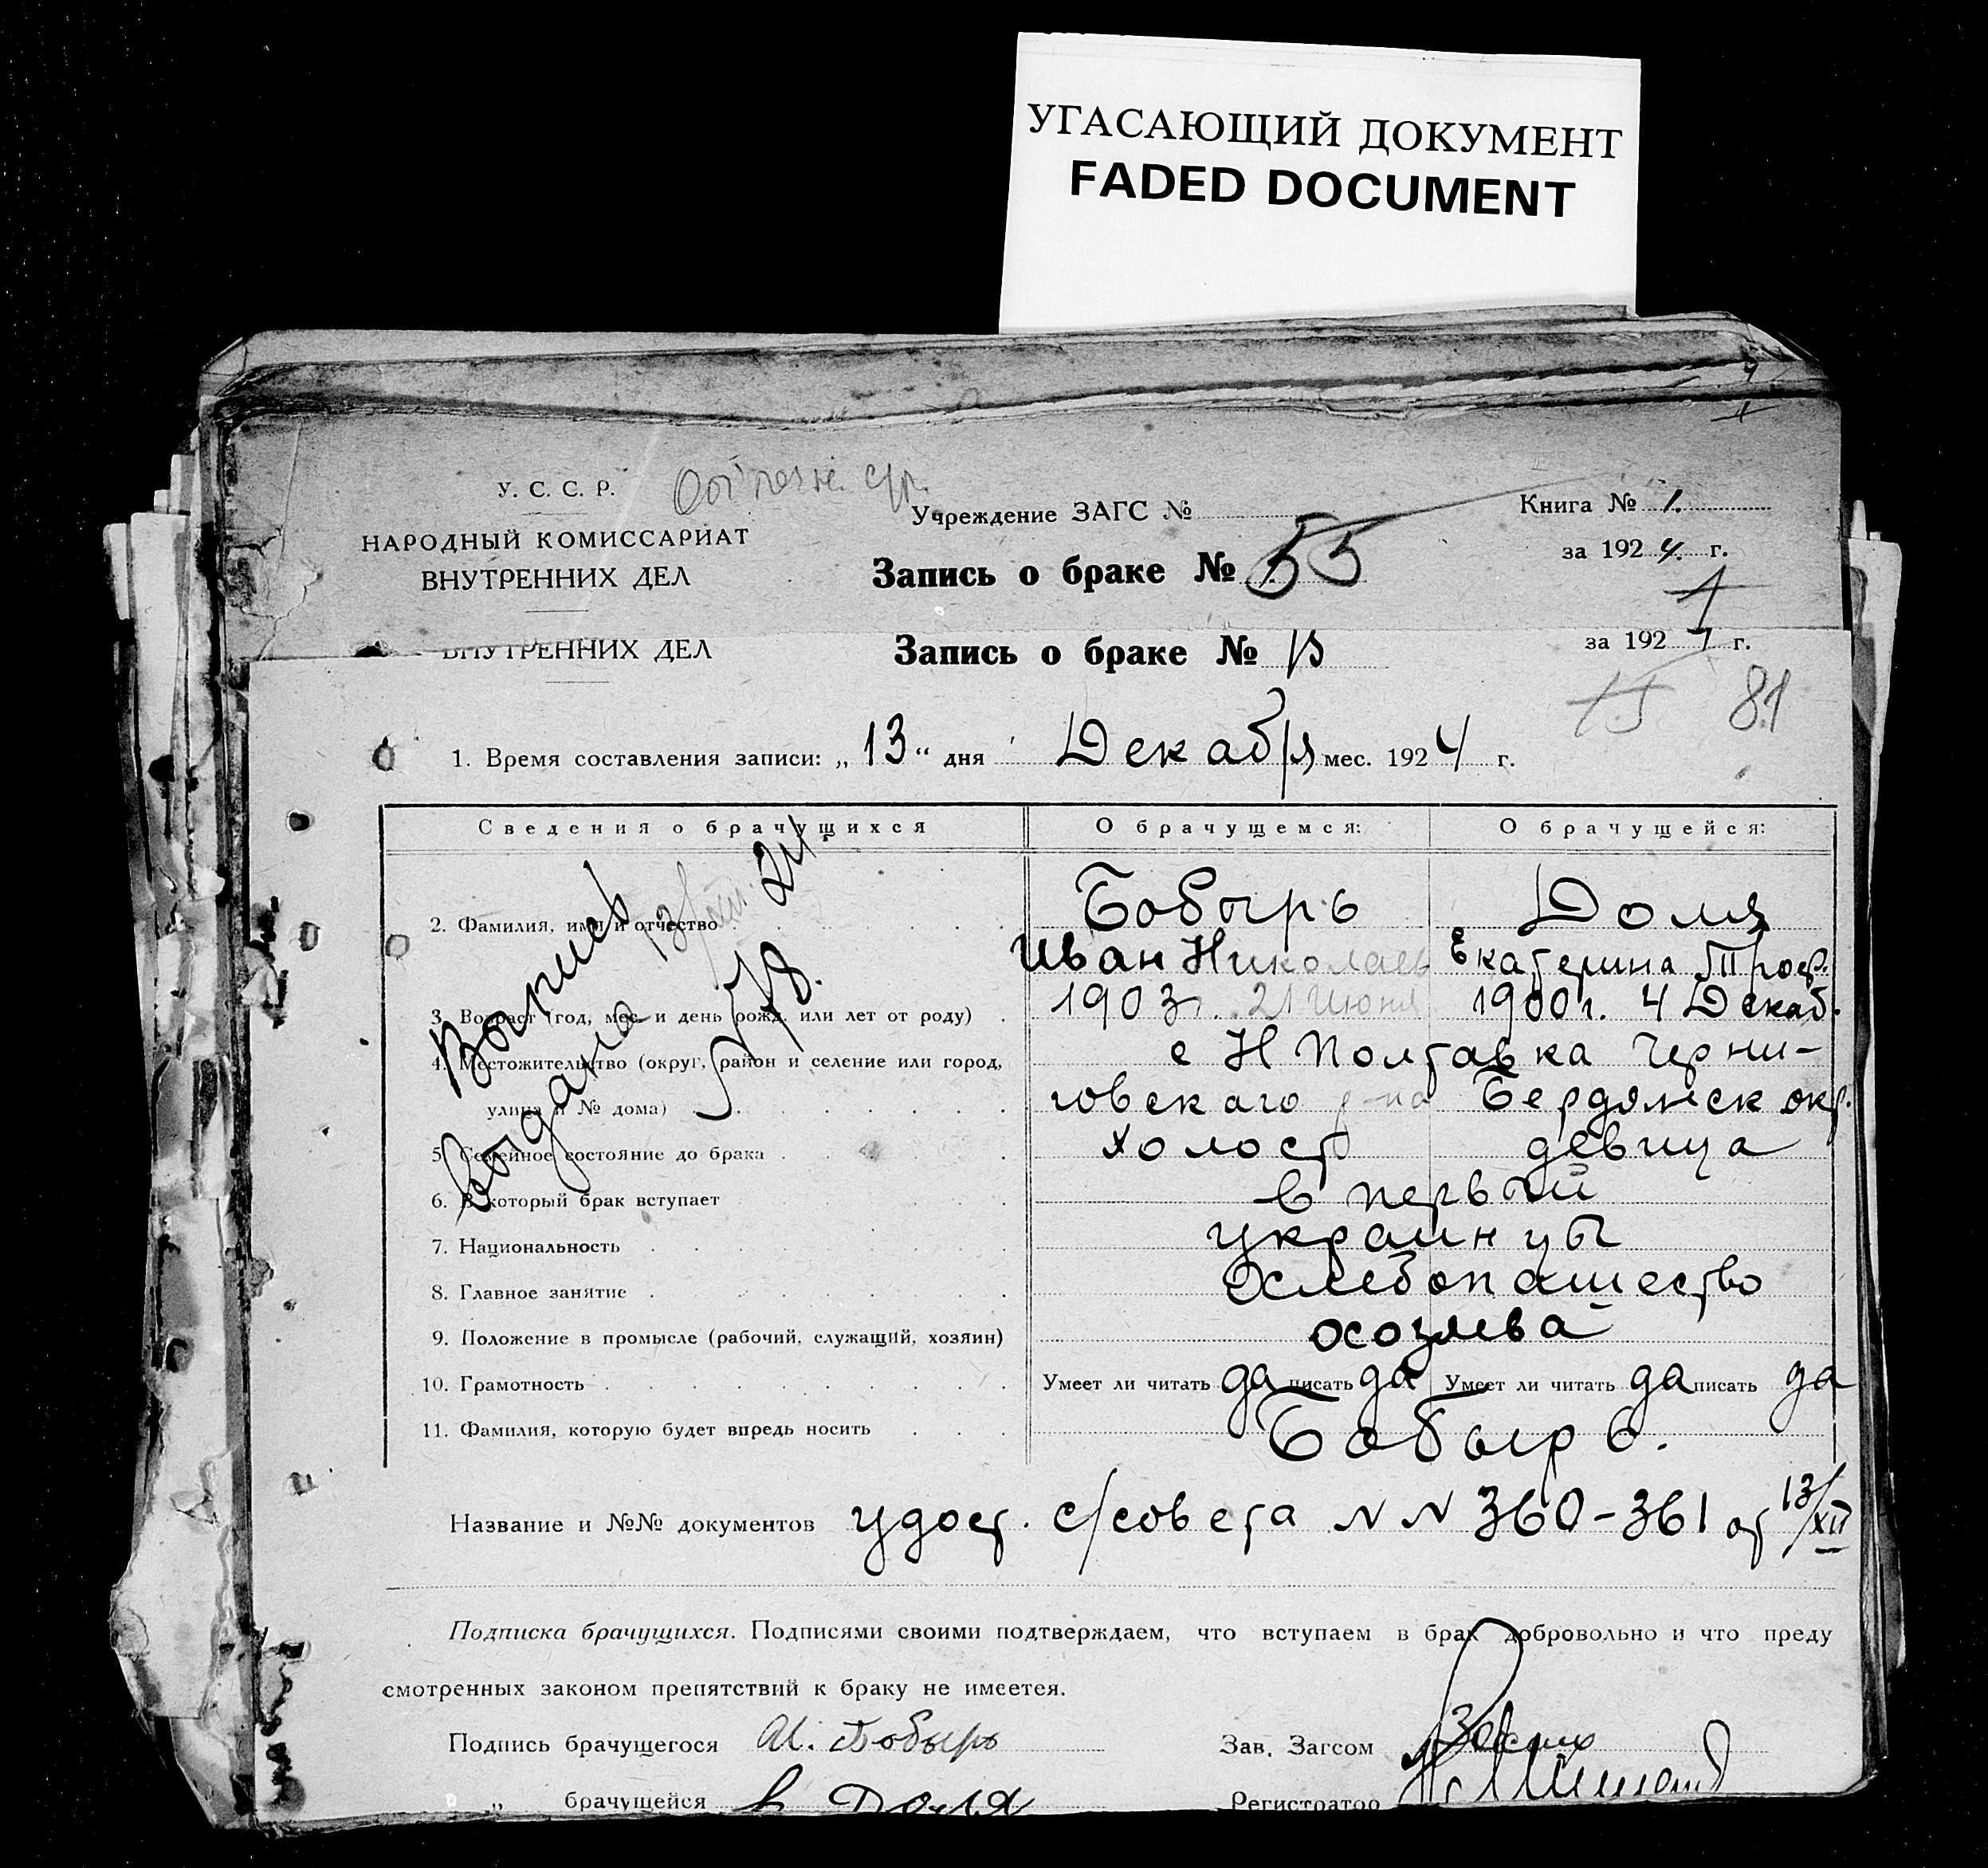 УГАСАЮЩИЙ ДОКУМЕНТ
FADED DOCUMENT
У. С. С. Р.
НАРОДНЫЙ КОМИССАРИАТ
ВНУТРЕННИХ ДЕЛ
Учреждение ЗАГС №
Запись о браке № 55
Книга № 1.
за 1924 г.
1
ВНУТРЕННИХ ДЕЛ
Запись о браке №
за 192 г.
15 81
1. Время составления записи: „13" дня Декабря мес. 1924 г.
Сведения о брачущихся О брачущемся: О брачущейся:
2. Фамилия, имя и отчество Бобырь Доля
Иван Николаев Екатерина Троф.
3. Возраст (год, мес. и день рожд. или лет от роду) 1903г. 21 Июня 1900г. 4 Декаб.
4. Местожительство (округ, район и селение или город, с Н Полтавка Черни-
улица и № дома) говского р-на Бердянск окр.
5. Семейное состояние до брака холост девица
6. В который брак вступает в первый
7. Национальность украинцы
8. Главное занятие Хлебопашество
9. Положение в промысле (рабочий, служащий, хозяин)
10. Грамотность Умеет ли читать да писать да Умеет ли читать да писать да
11. Фамилия, которую будет впредь носить Бобырь.
Выпись
выдана 13/XII 24
№ 78.
Название и №№ документов удост. с/совета NN 360-361 от 13/XII
Подписка брачущихся. Подписями своими подтверждаем, что вступаем в брак добровольно и что преду
смотренных законом препятствий к браку не имеется.
Подпись брачущегося И. Бобырь Зав. Загсом
„ брачущейся Доля Регистратор